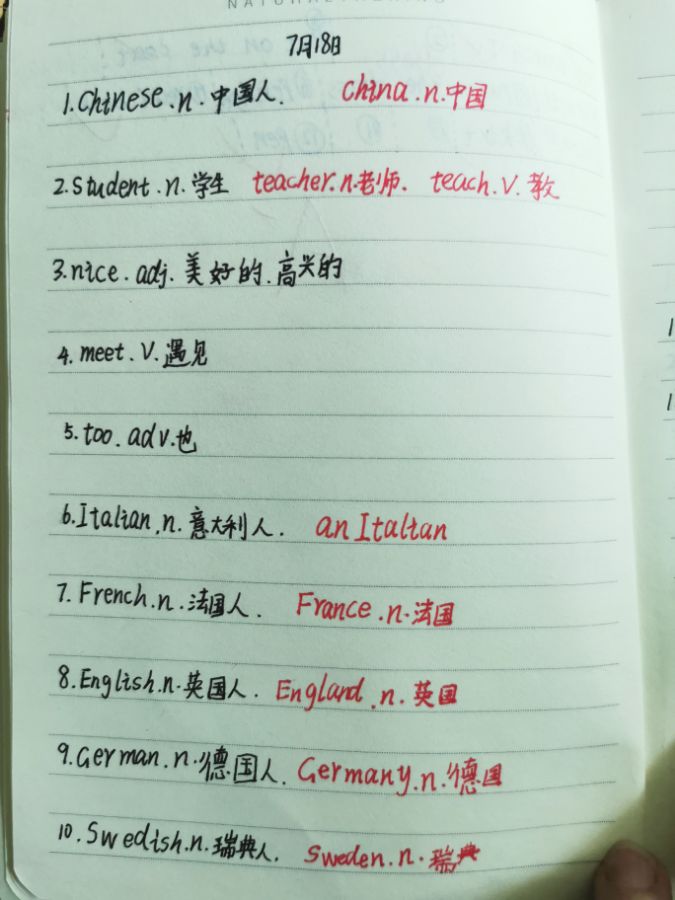 7月18日
1.Chinese.n.中国人. China.n.中国
2.student.n.学生 teacher.n.老师. teach.v.教
3.nice.adj.美好的.高兴的
4.meet.v.遇见
5.too.adv.也
6.Italian.n.意大利人. an Italian
7.French.n.法国人. France.n.法国
8.English.n.英国人. England.n.英国
9.German.n.德国人. Germany.n.德国
10.Swedish.n.瑞典人. Sweden.n.瑞典